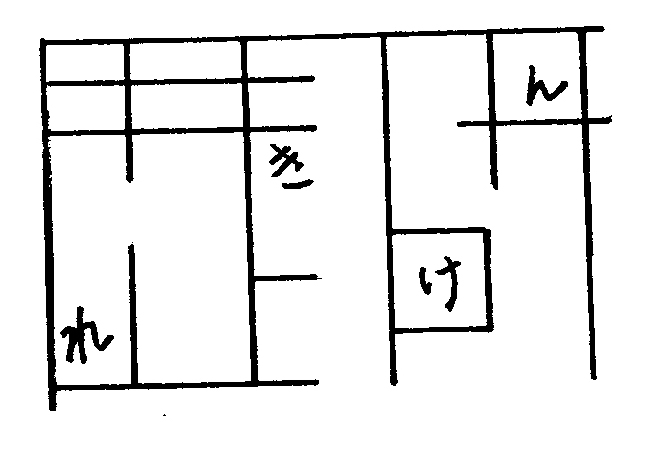 ん
き
け
れ